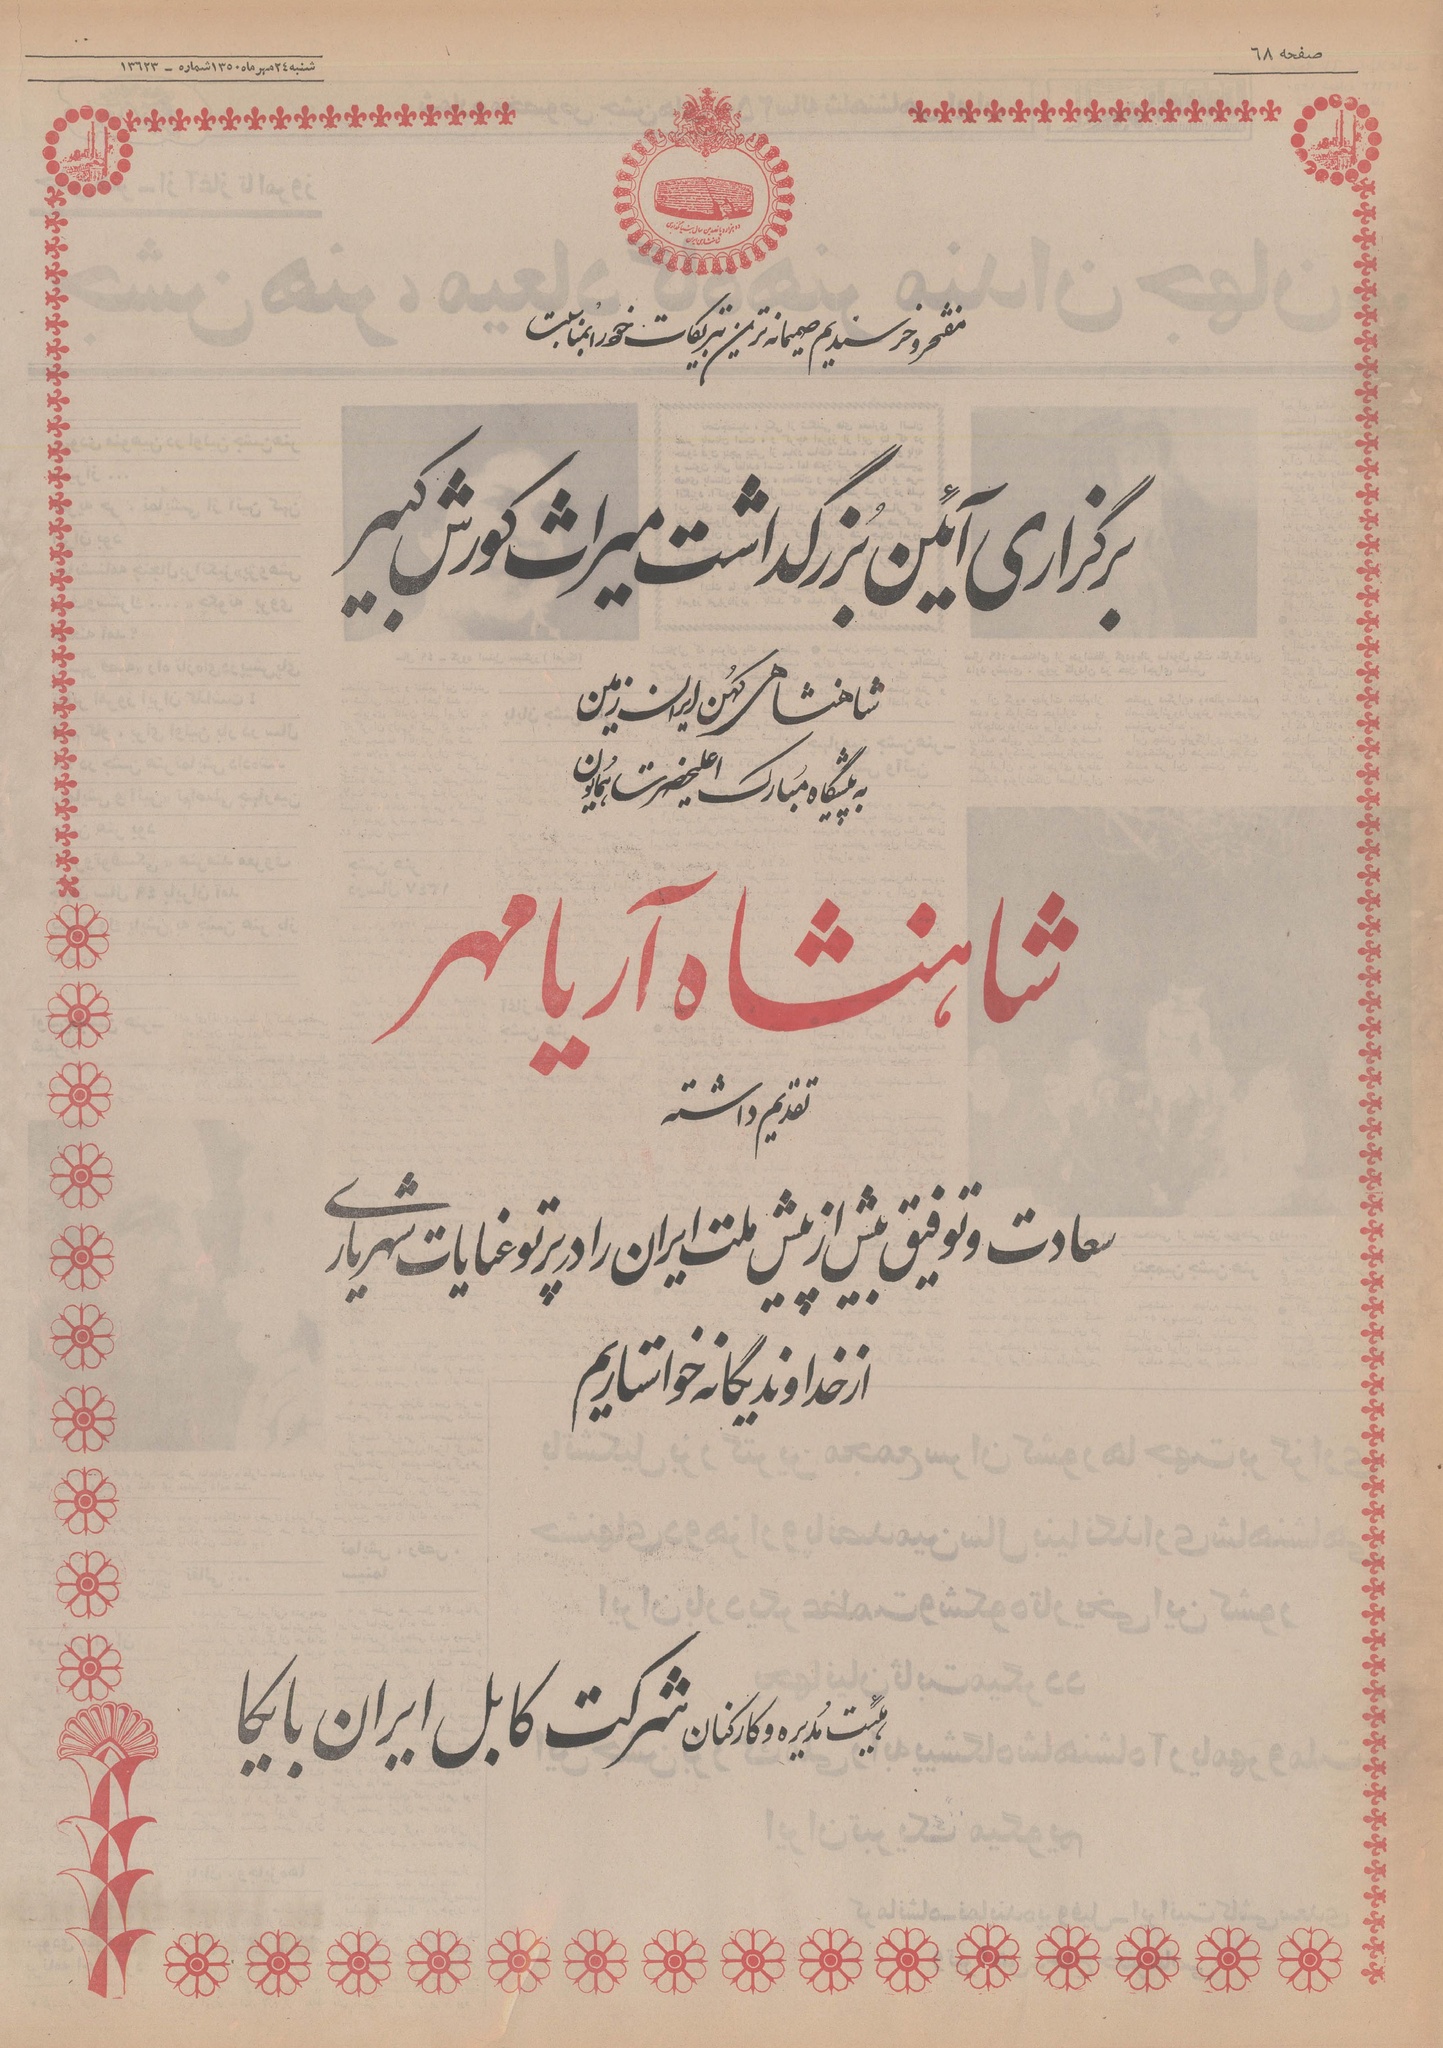 صفحه ۶۸
شنبه ۲۴ مهر ماه ۱۳۵۰ شماره – ۱۳۶۲۳
دو هزار و پانصدمین سال بنیانگذاری
شاهنشاهی ایران
مفتخر و خرسندیم صمیمانه ترین تبریکات خود را بمناسبت
برگزاری آئین بُزرگداشت میراث کورش کبیر
شاهنشاهی کهُن ایران زمین
به پیشگاه مُبارک اعلیحضرت هُمایون
شاهنشاه آریامهر
تقدیم داشته
سعادت و توفیق بیش از پیش ملت ایران را در پرتو عنایات شهریاری
از خداوند یگانه خواستاریم
هیئت مُدیره و کارکنان شرکت کابل ایران بایکا